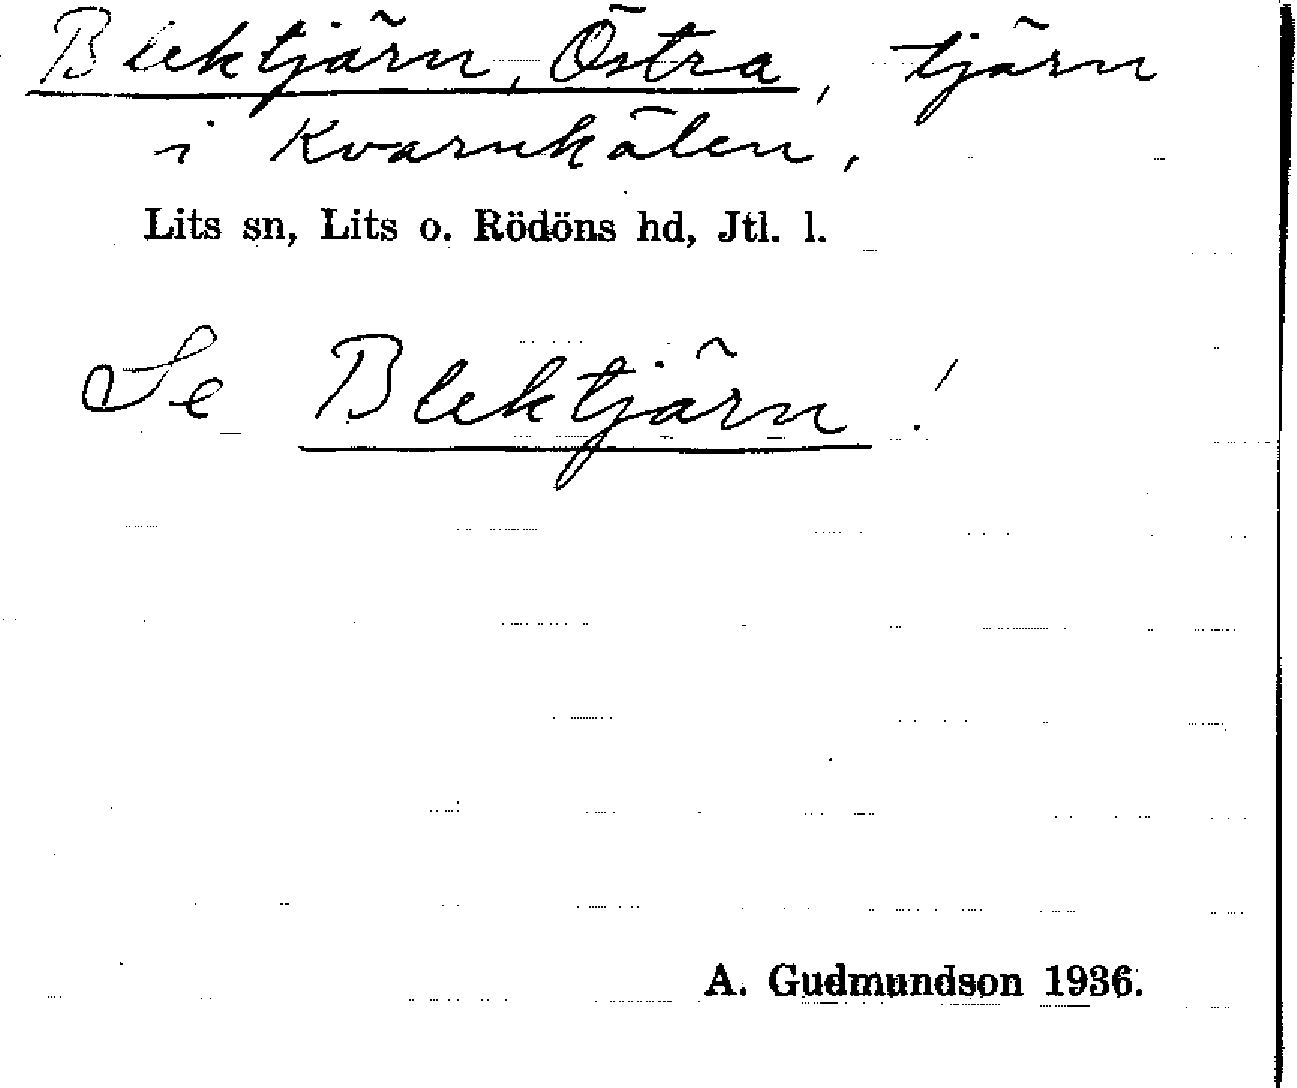 Blektjärn, Östra, tjärn
i Kvarnkälen,
Lits sn, Lits o. Rödöns hd, Jtl. l.
Se Blektjärn!
A. Gudmundson 1936.